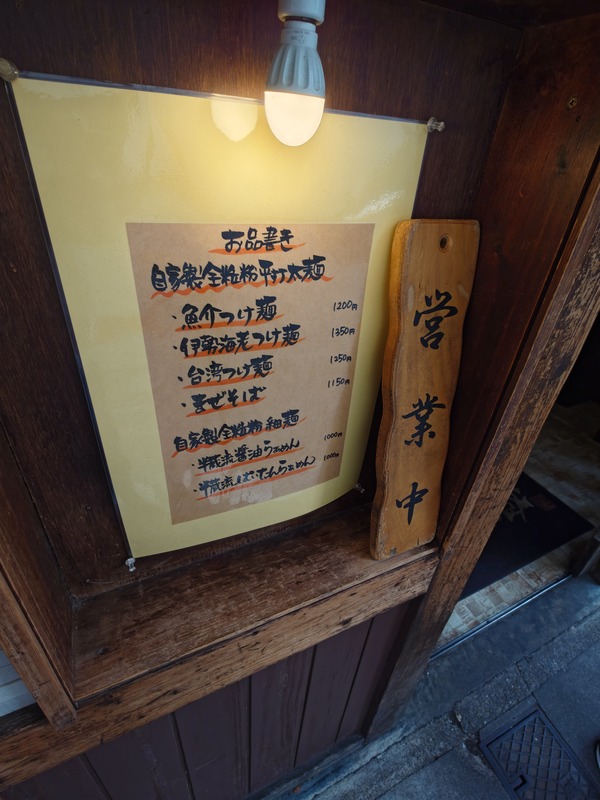 お品書き
自家製全粒粉平打太麺
・魚介つけ麺 1200円
・伊勢海老つけ麺 1350円
・台湾つけ麺 1250円
・まぜそば 1150円
自家製全粒粉 細麺
・半蔵流醤油らぁめん 1000円
・半蔵流しぼたんらぁめん 1000円
営業中